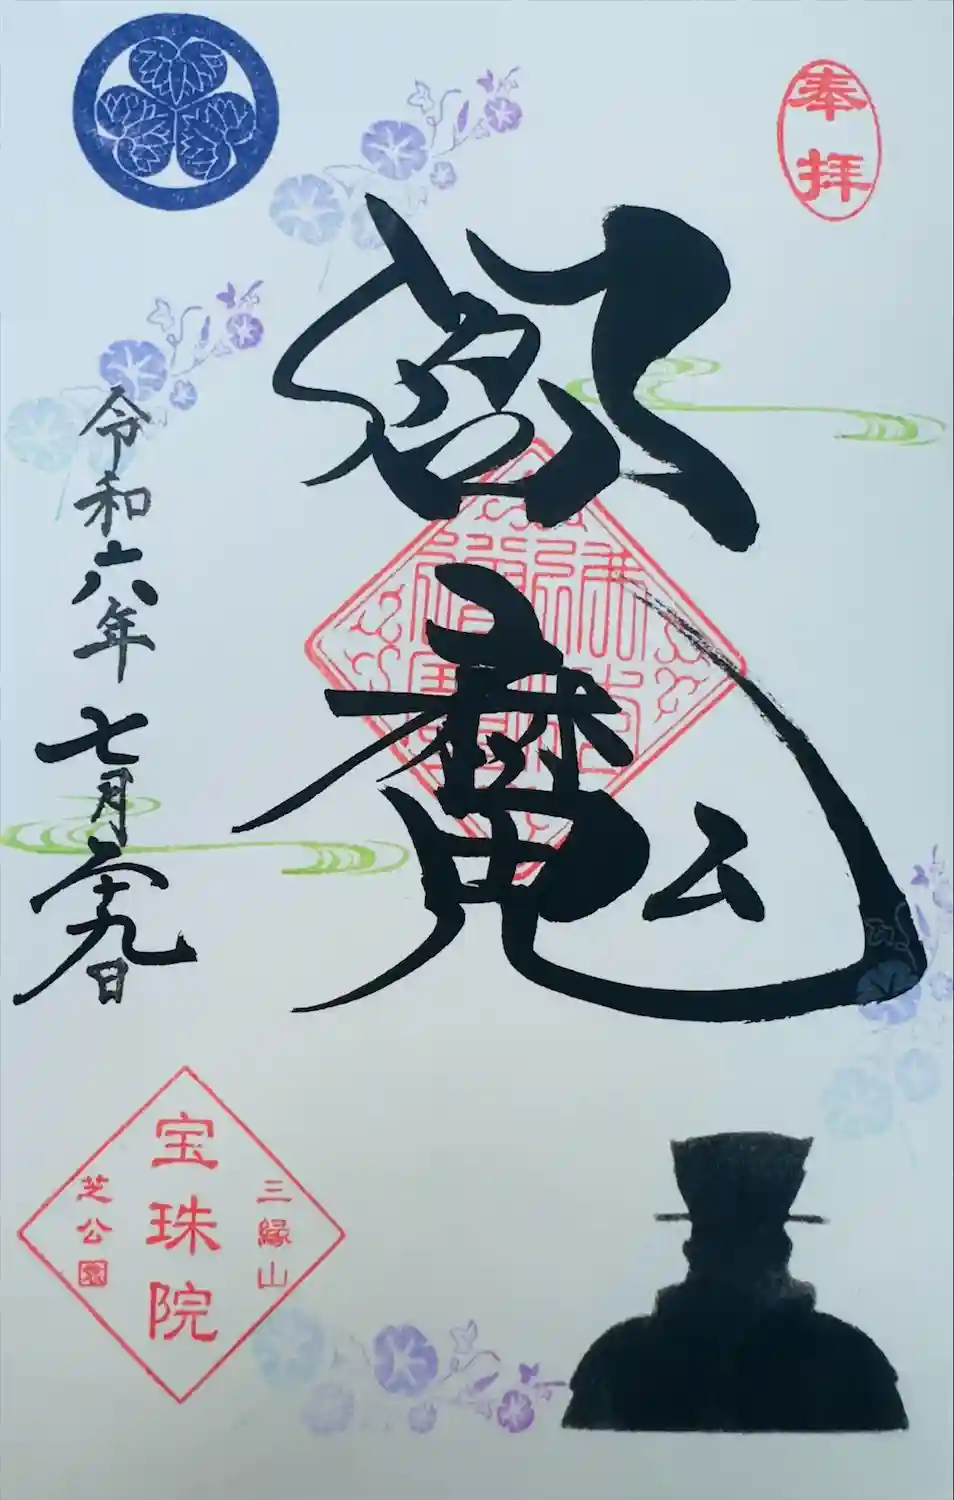 奉拝
閻魔
令和六年 七月二十九日
三縁山
宝珠院
芝公園